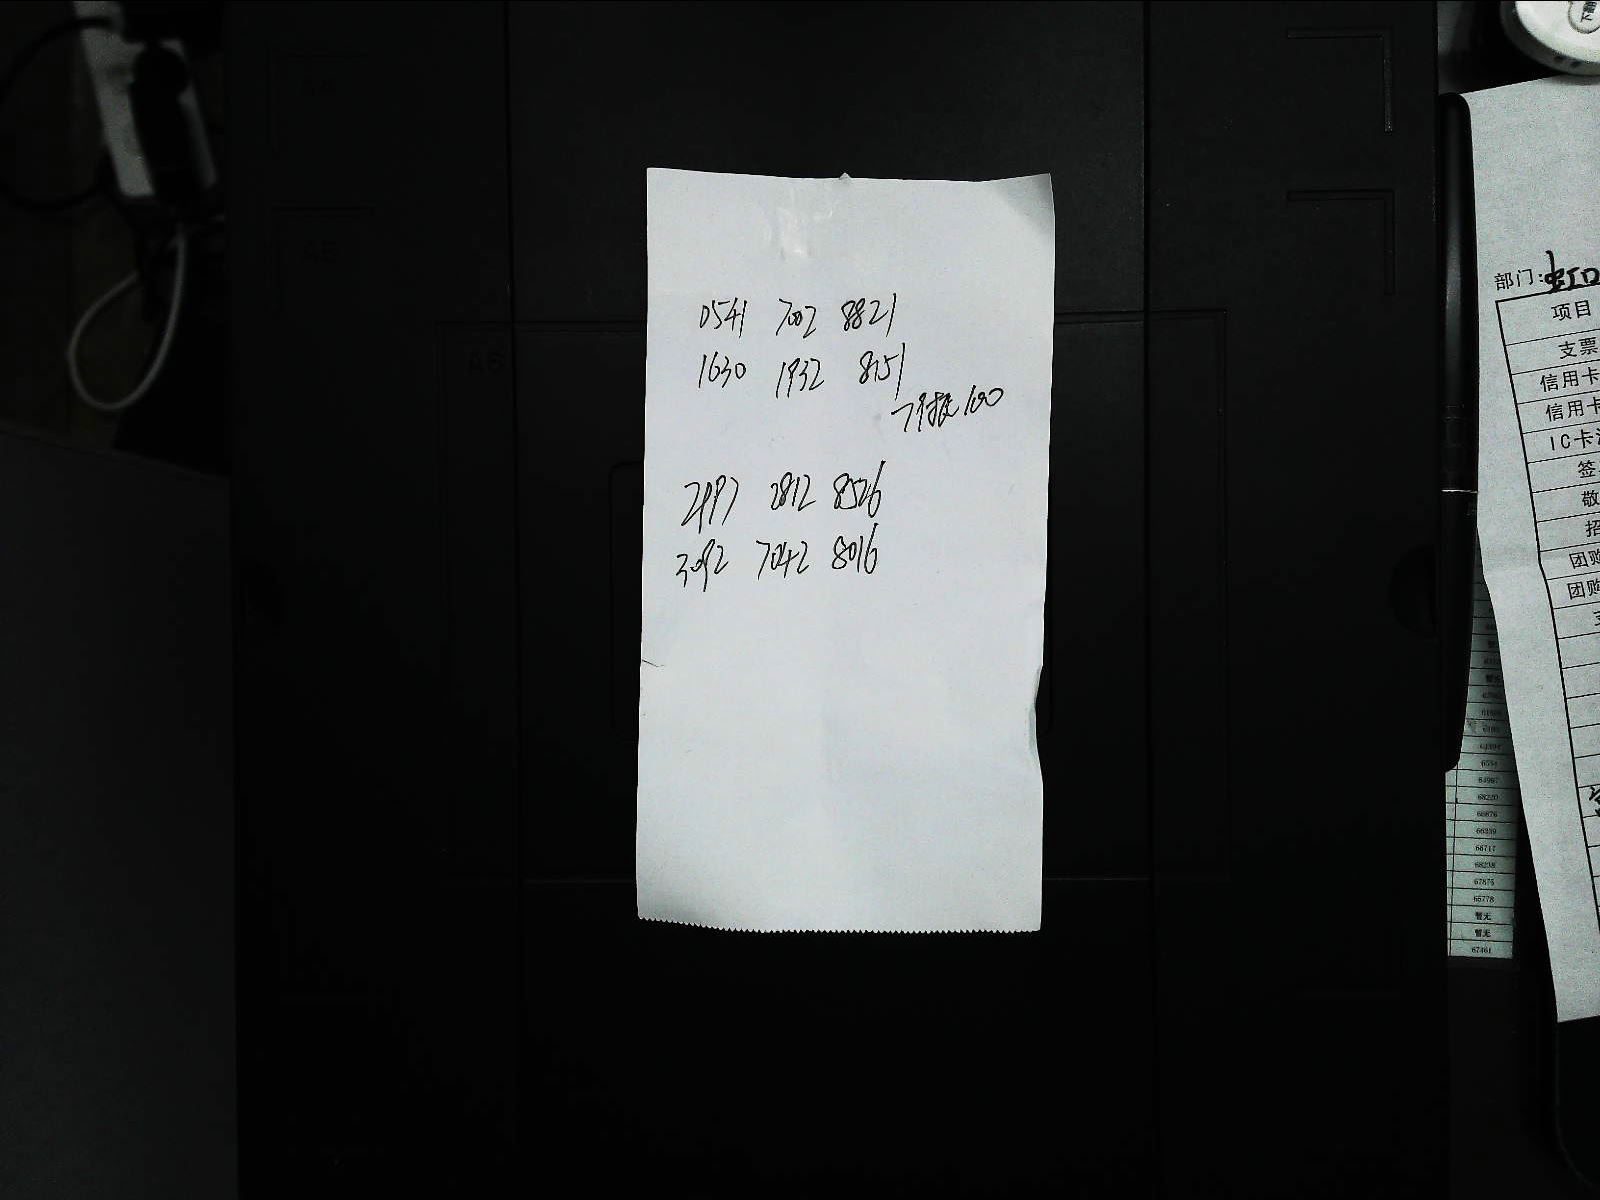 0541 7002 8821
1630 1932 8151
100
2997 2812 8526
3092 7042 8016
部门:虹口
项目
支票
信用卡
信用卡
IC卡
签
敬
招
团购
团购
支
6534
64997
68220
66876
66339
66717
68238
67875
65778
暂无
暂无
67461